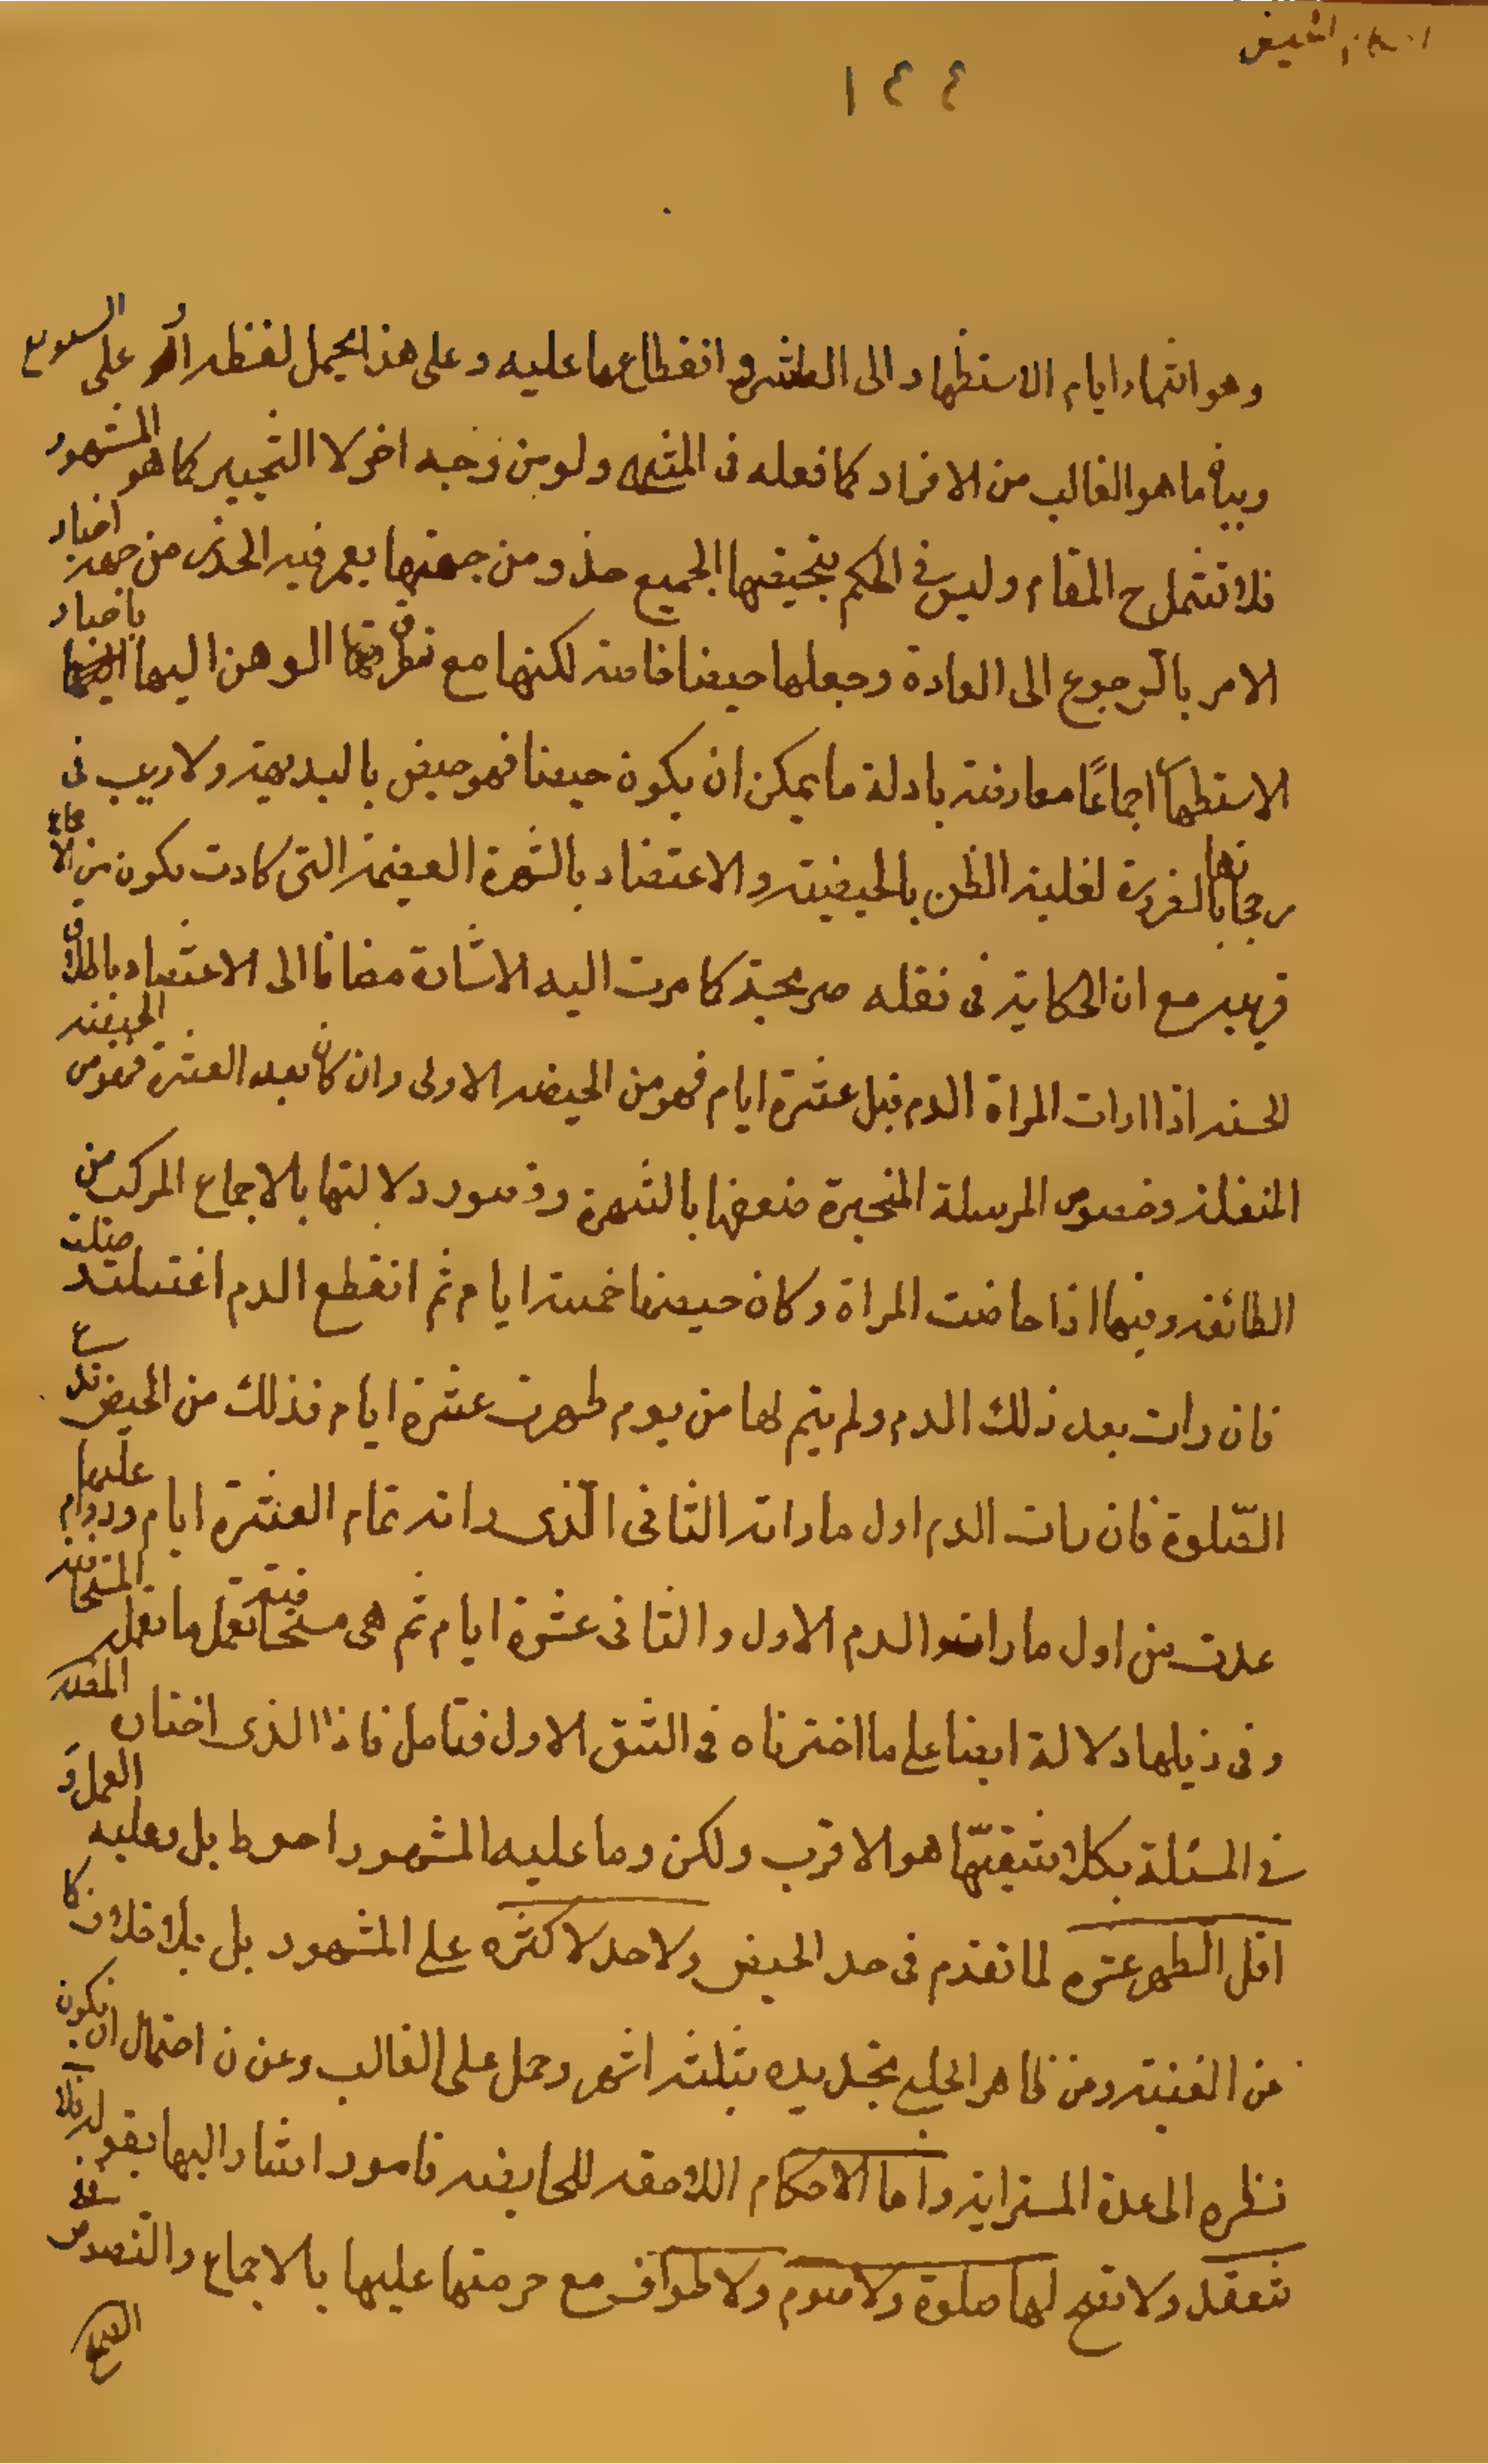 ١٤٤
وهو اثمار ايام الاستظهار الى العاشر وانقطاعها عليه وعلى هذا يحمل لفظه على
ما هو الغالب من الافراد كما فعله فى ولو من وجه اخر لا التخيير كما هو المشهور
فلا تشمل ح المقام وليس فى الحكم بتحيضها الجميع ومن جهتها يعم فيه من جهة اخبار
الامر بالرجوع الى العادة وجعلها حيضا خاصة لكنها مع الوهن اليها باخبار
الاستظها اجماعًا معارضة بادلة ما يمكن ان يكون حيضا فهو حيض بالبديهة ولا ريب فى
رجحانها لغلبة الظن بالحيضية والاعتضاد بالشهرة العظيمة التى كادت تكون من الا
مع ان الحكاية فى نقله صريحة كما مرت اليه الاشارة مضافا الى الاعتضاد
الحسنة اذا رات المراة الدم قبل عشرة ايام فهو من الحيضة الاولى وان كان بعد العشرة فهو من الحيضة
وخصوص المرسلة المنجبرة ضعفها بالشهرة وقصور دلالتها بالاجماع المركب من
الطائفة وفيها اذا حاضت المراة وكان حيضها خمسة ايام ثم انقطع الدم اغتسلت وصلت
فان رات بعد ذلك الدم ولم يتم لها من يوم طهرت عشرة ايام فذلك من الحيض تدع
الصّلوة فان رات الدم اول ما راته الثانى الّذى راته تمام العشرة ايام ودام عليها
عدت من اول ما رات الدم الاول والثانى عشرة ايام ثم هى مستحاضة تعمل ما تعمل المستحاضة
وفى ذيلها دلالة ايضا على ما اخترناه فى الشق الاول فتامل فاذا الذى اختاره
فى المسئلة بكلا شقيّها هو الاقرب ولكن وما عليه المشهور احوط بل وعليه العمل و
اقل الطهر عشرة لما تقدم فى حد الحيض ولا حد لاكثره على المشهور بل بلا خلاف كما
عن الغنية وعن ظاهر الحلبى تحديده بثلثة اشهر وحمل على الغالب وعن ن احتمال ان يكون
نظره الى عدة المسترابة واما الاحكام اللاحقه للحايض فامور اشار اليها بقوله فلا
تنعقد ولا تصح لها صلوة ولا صوم ولا طواف مع حرمتها عليها بالاجماع والنصوص